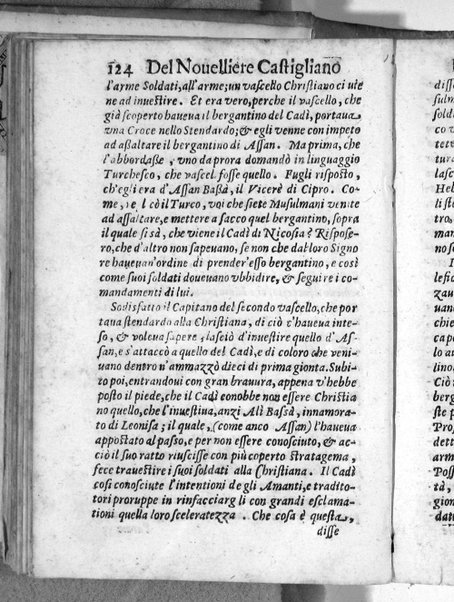 124 Del Nouelliere Castigliano
l'arme Soldati, all'arme; un vascello Christiano ci vie
ne ad inuestire. Et era vero, perche il vascello, che
già scoperto haueua il bergantino del Cadì, portaua
vna Croce nello Stendardo; & egli venne con impeto
ad assaltare il bergantino di Assan. Ma prima, che
l'abbordasse, vno da prora domandò in linguaggio
Turchesco, che vascel fosse quello. Fugli risposto,
ch'egli era d'Assan Bassà, il Vicerè di Cipro. Co-
me, replicò il Turco, voi che siete Musulmani venite
ad assaltare, e mettere a sacco quel bergantino, sopra
il quale si sà, che viene il Cadì di Nicosia? Rispose-
ro, che d'altro non sapeuano, se non che dal loro Signo
re haueuan'ordine di prender'esso bergantino, e così
come suoi soldati doueuano vbbidire, & seguire i co-
mandamenti di lui.
Sodisfatto il Capitano del secondo vascello, che por
taua stendardo alla Christiana, di ciò c'haueua inte-
so, & voleua sapere, lasciò d'inuestire quello d'As-
san, e s'attaccò a quello del Cadì, e di coloro che veni-
uano dentro n'ammazzò dieci di prima gionta. Subi-
to poi, entrandoui con gran brauura, appena v'hebbe
posto il piede, che il Cadì conobbe non essere Christia
no quello, che l'inuestiua, anzi Alì Bassà, innamora-
to di Leonisa; il quale, (come anco Assan) l'haueua
appostato al passo, e per non essere conosciuto, & ac-
ciò il suo ratto riuscisse con più coperto stratagema,
fece trauestire i suoi soldati alla Christiana. Il Cadì
così conosciute l'intentioni degli Amanti, e tradito-
tori proruppe in rinfacciargli con grandi esclama-
tioni quella loro sceleratezza. Che cosa è questa,
disse